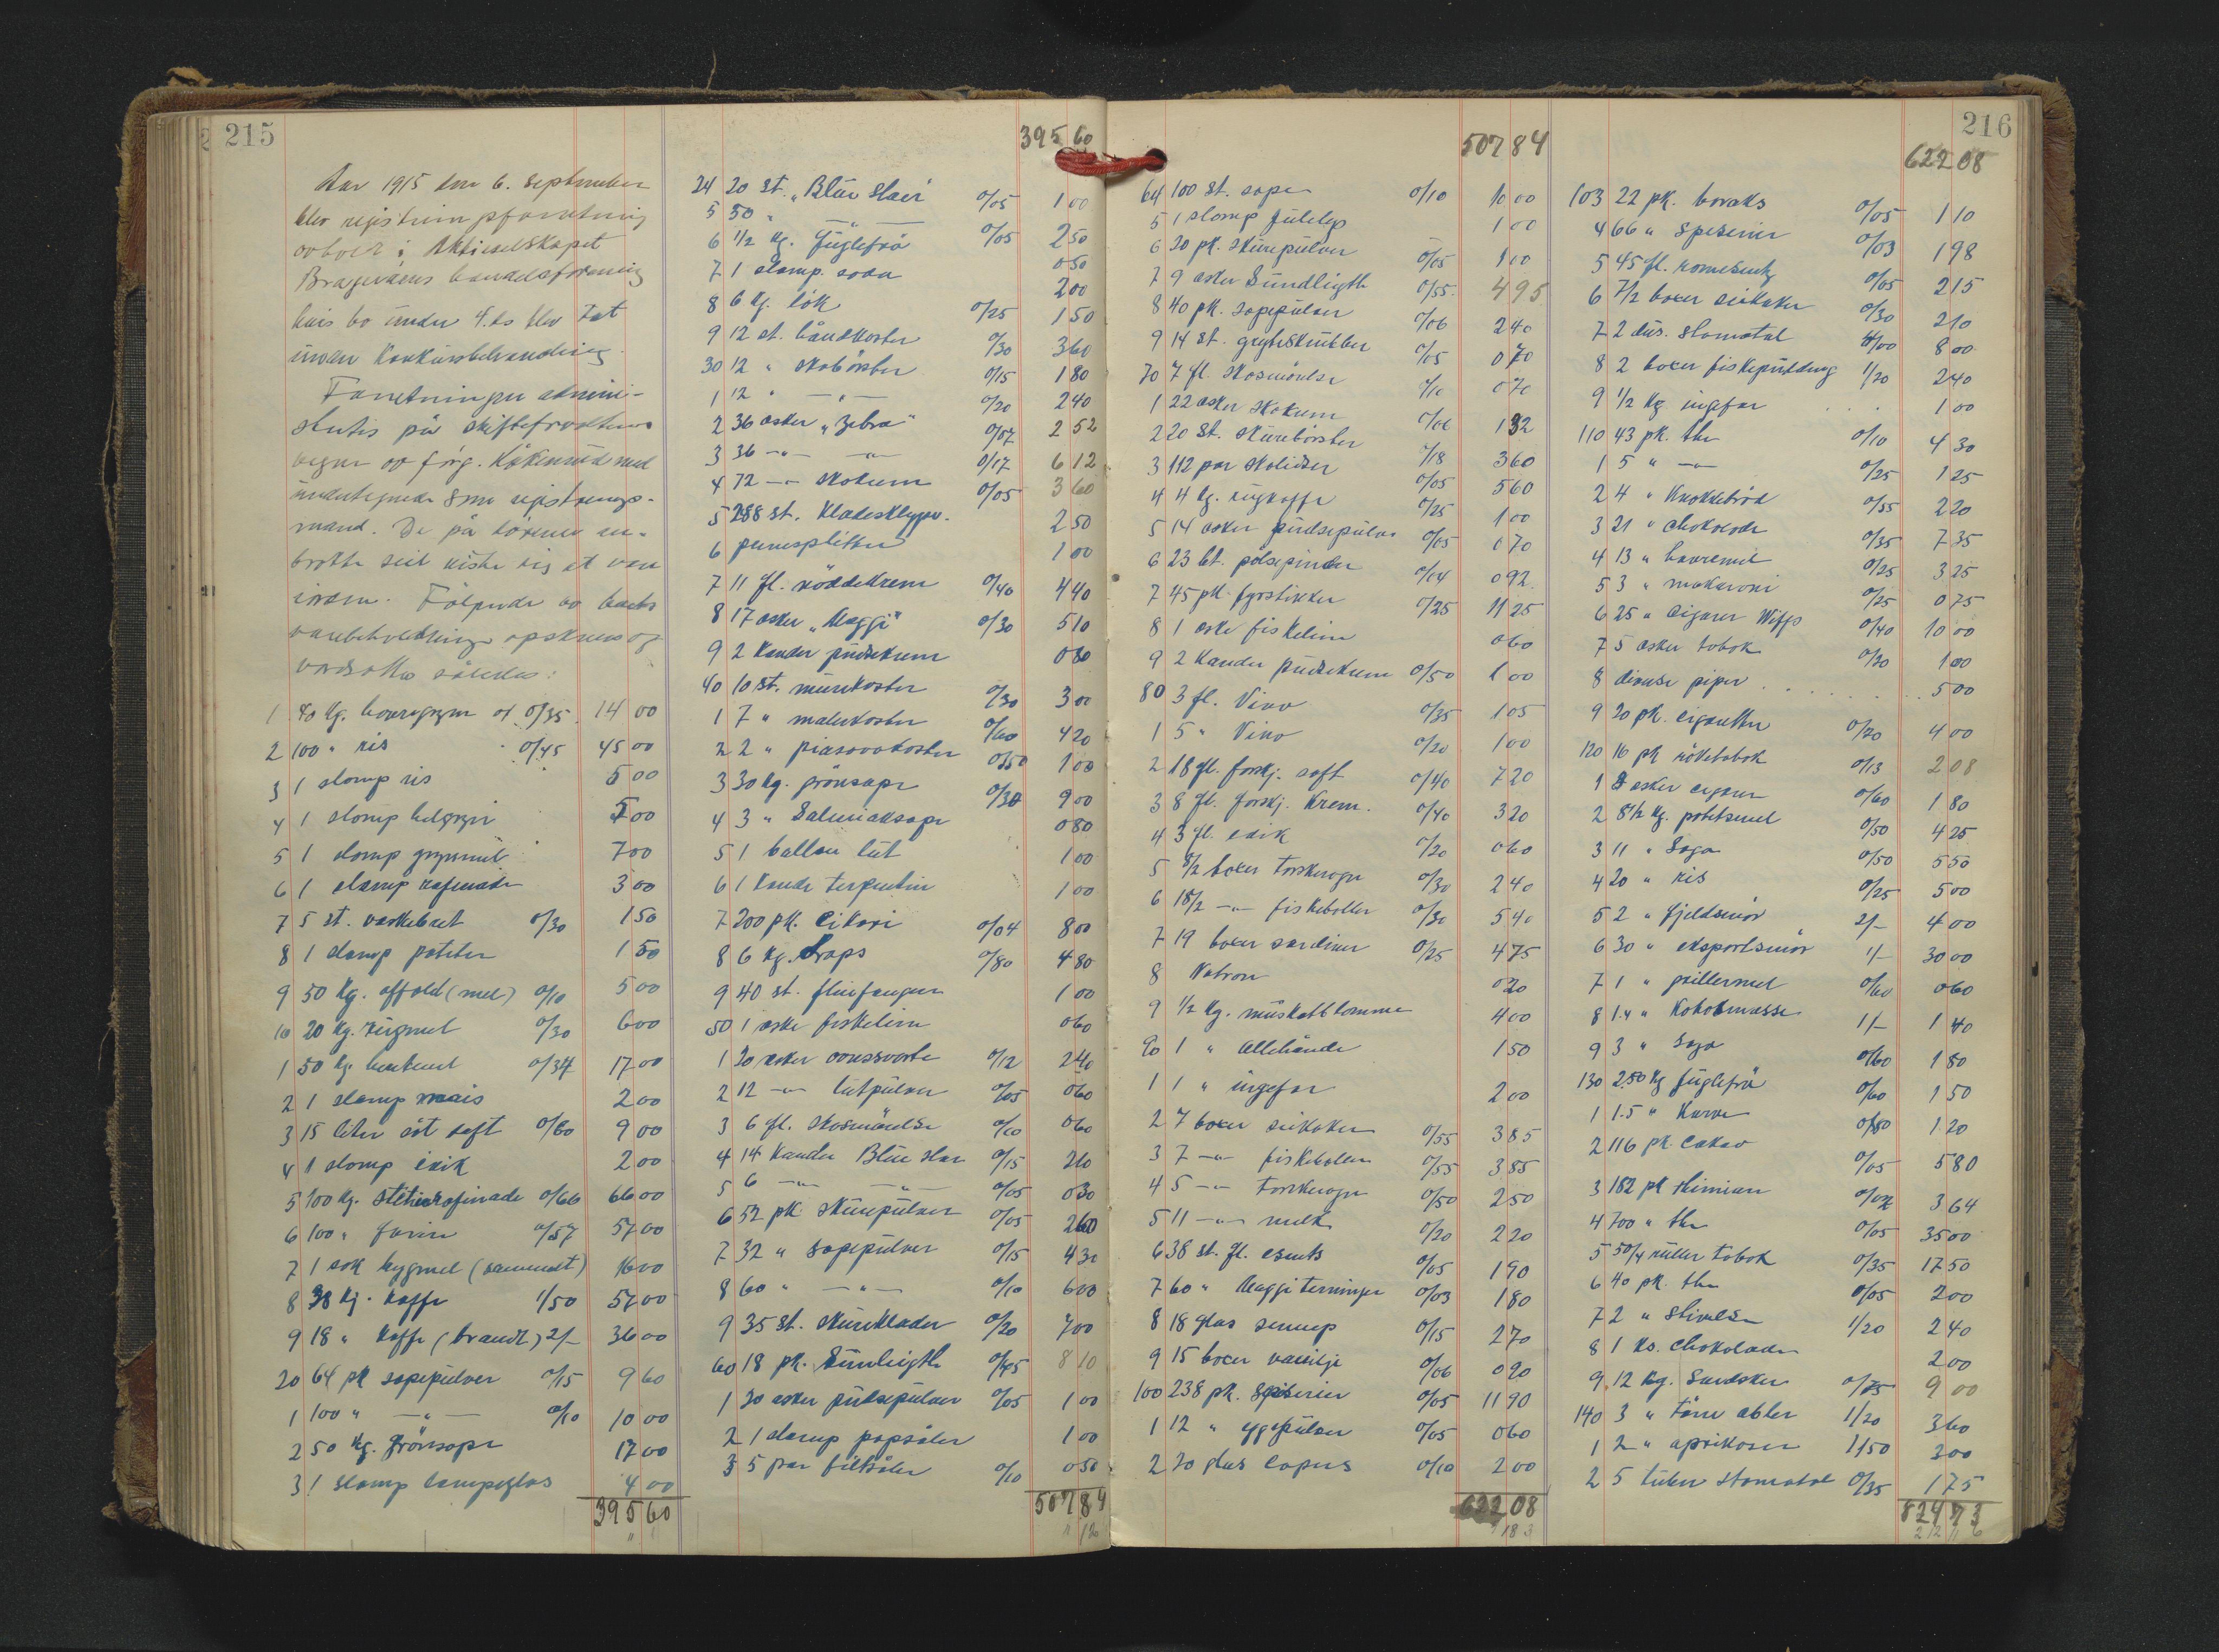 215
Aar 1915 den 6. September
blev registreringsforretning
avholdt i Aktieselskapet
Bragernæs handelsforening
hvis bo under 4. ds blev tat
under konkursbehandling.
Forretningen admini-
strertes på skifteforvalterens
vegne av
undertegnede som registrerings-
mand. De på dörene an-
bragte seil viste sig at være
Følgende av boets
varebeholdninger opskreves og
værdsattes således:
1 40 kg. havregryn à 0/35 14 00
2 100 " ris 0/45 45 00
3 1 slump ris 5 00
4 1 slump helgryn 5 00
5 1 slump grynmel 7 00
6 1 slump rafinade 3 00
7 5 st. vaskebret 0/30 1 50
8 1 slump poteter 1 50
9 50 kg. affald (mel) 0/10 5 00
10 20 kg. rugmel 0/30 6 00
1 50 kg. hvetemel 0/34 17 00
2 1 slump mais 2 00
3 15 liter söt saft 0/60 9 00
4 1 slump edik 2 00
5 100 kg. rafinade 0/66 66 00
6 100 " farin 0/57 57 00
7 1 sæk bygmel (sammalt) 16 00
8 38 kg. kaffe 1/50 57 00
9 18 " kaffe (brændt) 2/- 36 00
20 64 pk sæpepulver 0/15 9 60
1 100 " — " — 0/10 10 00
2 50 kg. grönsæpe 17 00
3 1 slump lampeglas 4 00
395 60
395 60
24 20 st. "Blue Star" 0/05 1 00
5 50 " — " — 0/05 2 50
6 1/2 kg. fuglefrö 0 50
7 1 slump. soda 2 00
8 6 kg. lök 0/25 1 50
9 12 st. håndkoster 0/30 3 60
30 12 " skobörster 0/15 1 80
1 12 " — " — 0/20 2 40
2 36 æsker "Zebra" 0/07 2 52
3 36 — " — — " — 0/17 6 12
4 72 — " — skokrem 0/05 3 60
5 288 st. klædesklyper. 2 50
6 1 00
7 11 fl. röddekrem 0/40 4 40
8 17 æsker "Maggi" 0/30 5 10
9 2 kander pudsekrem 0 80
40 10 st. murkoster 0/30 3 00
1 7 " malerkoster 0/60 4 20
2 2 " piasavakoster 0/50 1 00
3 30 kg. grönsæpe 0/30 9 00
4 3 " Salmiaksæpe 0 80
5 1 ballon lut 1 00
6 1 kande terpentin 1 00
7 200 pk. Cikori 0/04 8 00
8 6 kg. Draps 0/80 4 80
9 40 st. fluefangere 1 00
50 1 æske fiskelim 0 60
1 20 æsker ovnssverte 0/12 2 40
2 12 — " — lutpulver 0/05 0 60
3 6 fl. skosmörelse 0/10 0 60
4 14 kander Blue Star 0/15 2 10
5 6 — " — — " — 0/05 0 30
6 52 pk skurepulver 0/05 2 60
7 32 " sæpepulver 0/15 4 30
8 60 " — " — 0/10 6 00
9 35 st. skureklæder 0/20 7 00
60 18 pk. Sunlight 0/45 8 10
1 20 æsker pudsepulver 0/05 1 00
2 1 slump papsåler 1 00
3 5 par filtsåler 0/10 0 50
507 84
507 84
64 100 st. sæper 0/10 10 00
5 1 slump julelys 1 00
6 20 pk. skurepulver 0/05 1 00
7 9 æsker Sundligth 0/55 4 95
8 40 pk. sæpepulver 0/06 2 40
9 14 st. gryteskrubber 0/05 0 70
70 7 fl. skosmörelse 0/10 0 70
1 22 æsker skokrem 0/06 1 32
2 20 st. skurebörster 0/18 3 60
3 112 par skolidser 0/05 5 60
4 4 kg. rugkaffe 0/25 1 00
5 14 æsker pudsepulver 0/05 0 70
6 23 bt. pölsepinder 0/04 0 92
7 45 pk. fyrstikker 0/25 11 25
8 1 æske fiskelim 0 60
9 2 kander pudsekrem 0/50 1 00
80 3 fl. Vino 0/35 1 05
1 5 " Vino 0/20 1 00
2 18 fl. forskj. saft 0/40 7 20
3 8 fl. forskj. krem. 0/40 3 20
4 3 fl. edik 0/20 0 60
5 8/2 bokser torskerogn 0/30 2 40
6 18/2 — " — fiskeboller 0/30 5 40
7 19 bokser sardiner 0/25 4 75
8 Natron 0 20
9 1/2 kg. muskatblomme 4 00
90 1 " Allehånde 1 50
1 1 " ingefær 2 00
2 7 bokser seikaker 0/55 3 85
3 7 — " — fiskeboller 0/55 3 85
4 5 — " — torskerogn 0/50 2 50
5 11 — " — melk 0/20 2 20
6 38 st. fl. esents 0/05 1 90
7 60 " Maggi terninger 0/03 1 80
8 18 glas sennep 0/15 2 70
9 15 bokser vanilje 0/06 0 90
100 238 pk. Spiserier 0/05 11 90
1 12 " eggepulver 0/05 0 60
2 20 glas Capers 0/10 2 00
622 08
216
622 08
103 22 pk. boraks 0/05 1 10
4 66 " Spiserier 0/03 1 98
5 45 fl. romesents 0/05 2 15
6 7/2 bokser seikaker 0/30 2 10
7 2 dus. Stomatol 4/00 8 00
8 2 bokser fiskepudding 1/20 2 40
9 1/2 kg. ingefær . . . 1 00
110 43 pk. the 0/10 4 30
1 5 " — " — 0/25 1 25
2 4 " knækkebröd 0/55 2 20
3 21 " chokolade 0/35 7 35
4 13 " havremel 0/25 3 25
5 3 " makaroni 0/25 0 75
6 25 " Cigarer Wiffs 0/40 10 00
7 5 æsker tobak 0/20 1 00
8 diverse piper . . . . . . . . 5 00
9 20 pk. cigaretter 0/20 4 00
120 16 pk röketobak 0/13 2 08
1 3 æsker cigarer 0/60 1 80
2 8 1/2 kg. potetmel 0/50 4 25
3 11 " Sago 0/50 5 50
4 20 " ris 0/25 5 00
5 2 " fjeldsmör 2/- 4 00
6 30 " eksportsmör 1/- 30 00
7 1 " pillermel 0/60 0 60
8 1.4 " Kokosmasse 1/- 1 40
9 3 " Sago 0/60 1 80
130 2.50 kg fuglefrö 0/60 1 50
1 1.5 " Karve 0/80 1 20
2 116 pk. Cakao 0/05 5 80
3 182 pk timian 0/02 3 64
4 700 " the 0/05 35 00
5 50/4 ruller tobak 0/35 17 50
6 40 pk. the 0/05 2 00
7 2 " stivelse 1/20 2 40
8 1 ks. Chokolade 2 00
9 12 kg. Sundsker 0/75 9 00
140 3 " törre æbler 1/20 3 60
1 2 " aprikoser 1/50 3 00
2 5 tuber stomatol 0/35 1 75
824 73